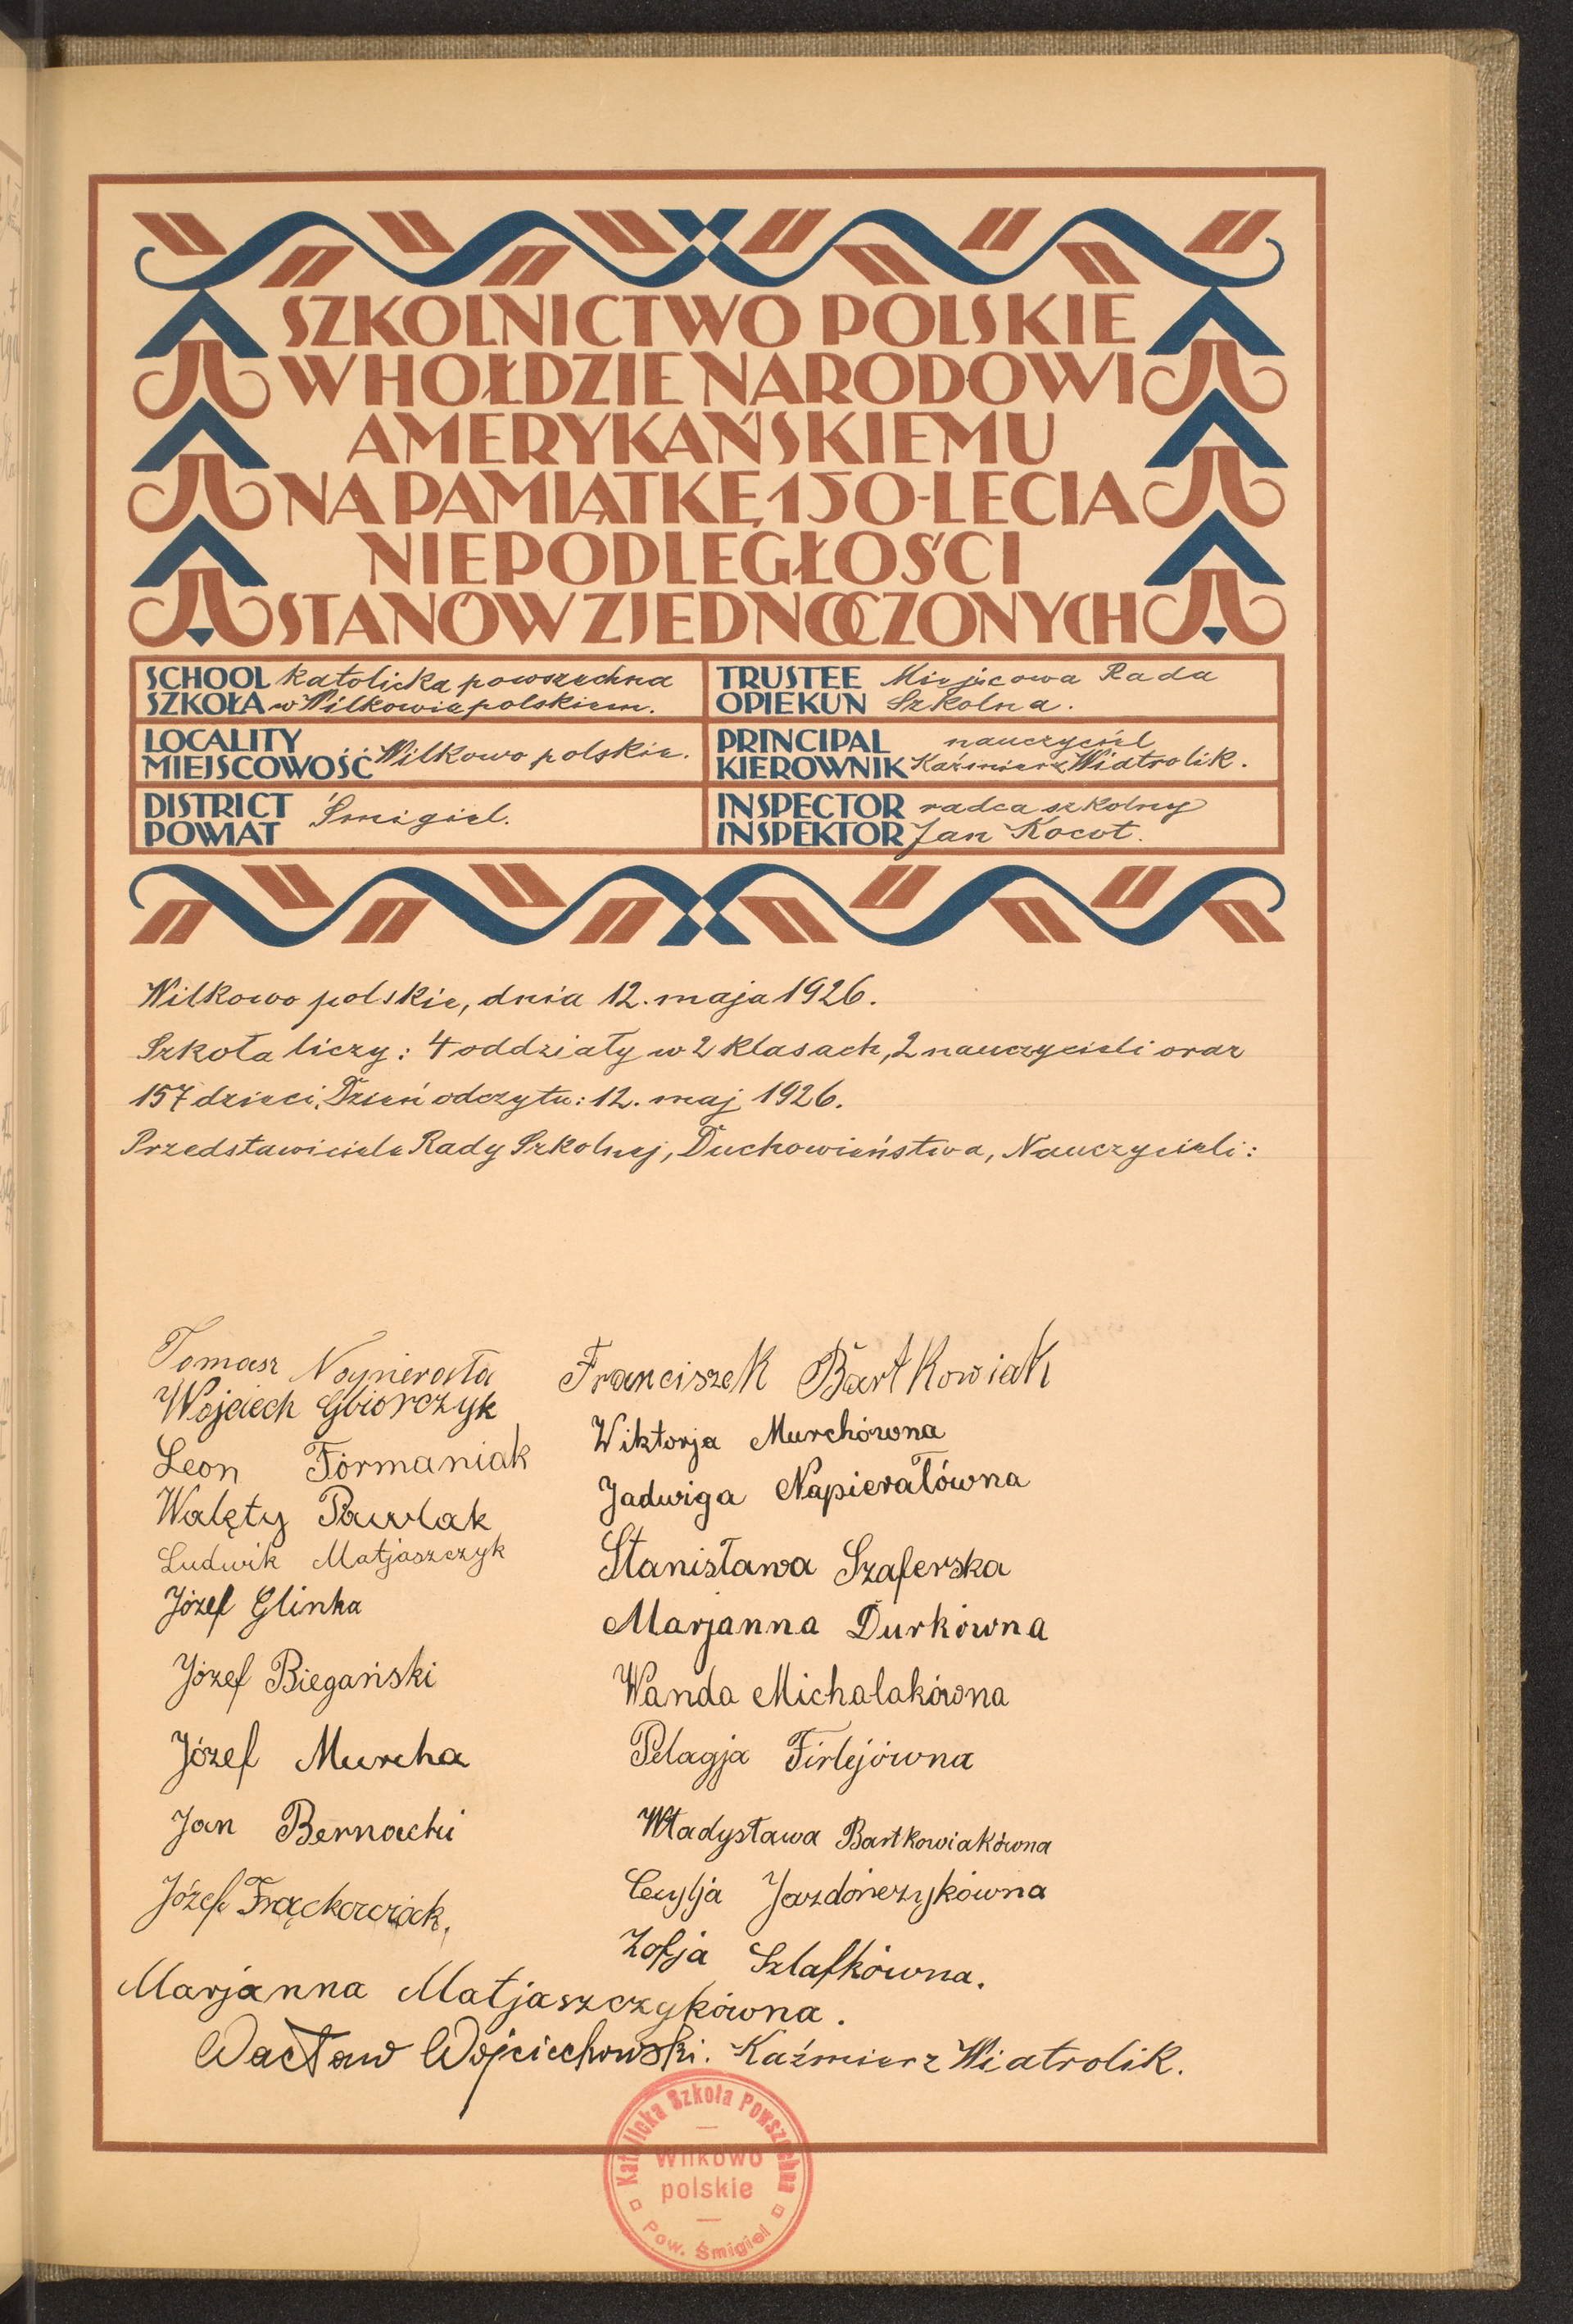 SZKOLNICTWO POLSKIE
W HOŁDZIE NARODOWI
AMERYKAŃSKIEMU
NA PAMIĄTKĘ 150-LECIA
NIEPODLEGŁOŚCI
STANÓW ZJEDNOCZONYCH
SCHOOL SZKOŁA katolicka powszechna
w Wilkowie polskiem.
TRUSTEE OPIEKUN Miejscowa Rada
Szkolna.
LOCALITY MIEJSCOWOŚĆ Wilkowo polskie.
PRINCIPAL KIEROWNIK nauczyciel
Kaźmierz Wiatrolik.
DISTRICT POWIAT Śmigiel.
INSPECTOR INSPEKTOR radca szkolny
Jan Kocot.
Wilkowo polskie, dnia 12. maja 1926.
Szkoła liczy: 4 oddziały w 2 klasach, 2 nauczycieli oraz
157 dzieci. Dzień odczytu: 12. maj 1926.
Przedstawiciele Rady Szkolnej, Duchowieństwa, Nauczycieli:
Tomasz Napierała
Wojciech Gbiorczyk
Leon Formaniak
Walęty Pawlak
Ludwik Matjaszczyk
Józef Glinka
Józef Biegański
Józef Murcha
Jan Bernacki
Józef Frąckowiak.
Franciszek Bartkowiak
Wiktorja Murchówna
Jadwiga Napierałówna
Stanisława Szaferska
Marjanna Durkówna
Wanda Michalakówna
Pelagja Firlejówna
Władysława Bartkowiakówna
Cecylja Jazdończykówna
Zofja Szlafkówna.
Marjanna Matjaszczykówna.
Wacław Wojciechowski. Kaźmierz Wiatrolik.
Katolicka Szkoła Powszechna
Wilkowo
polskie
Pow. Śmigiel